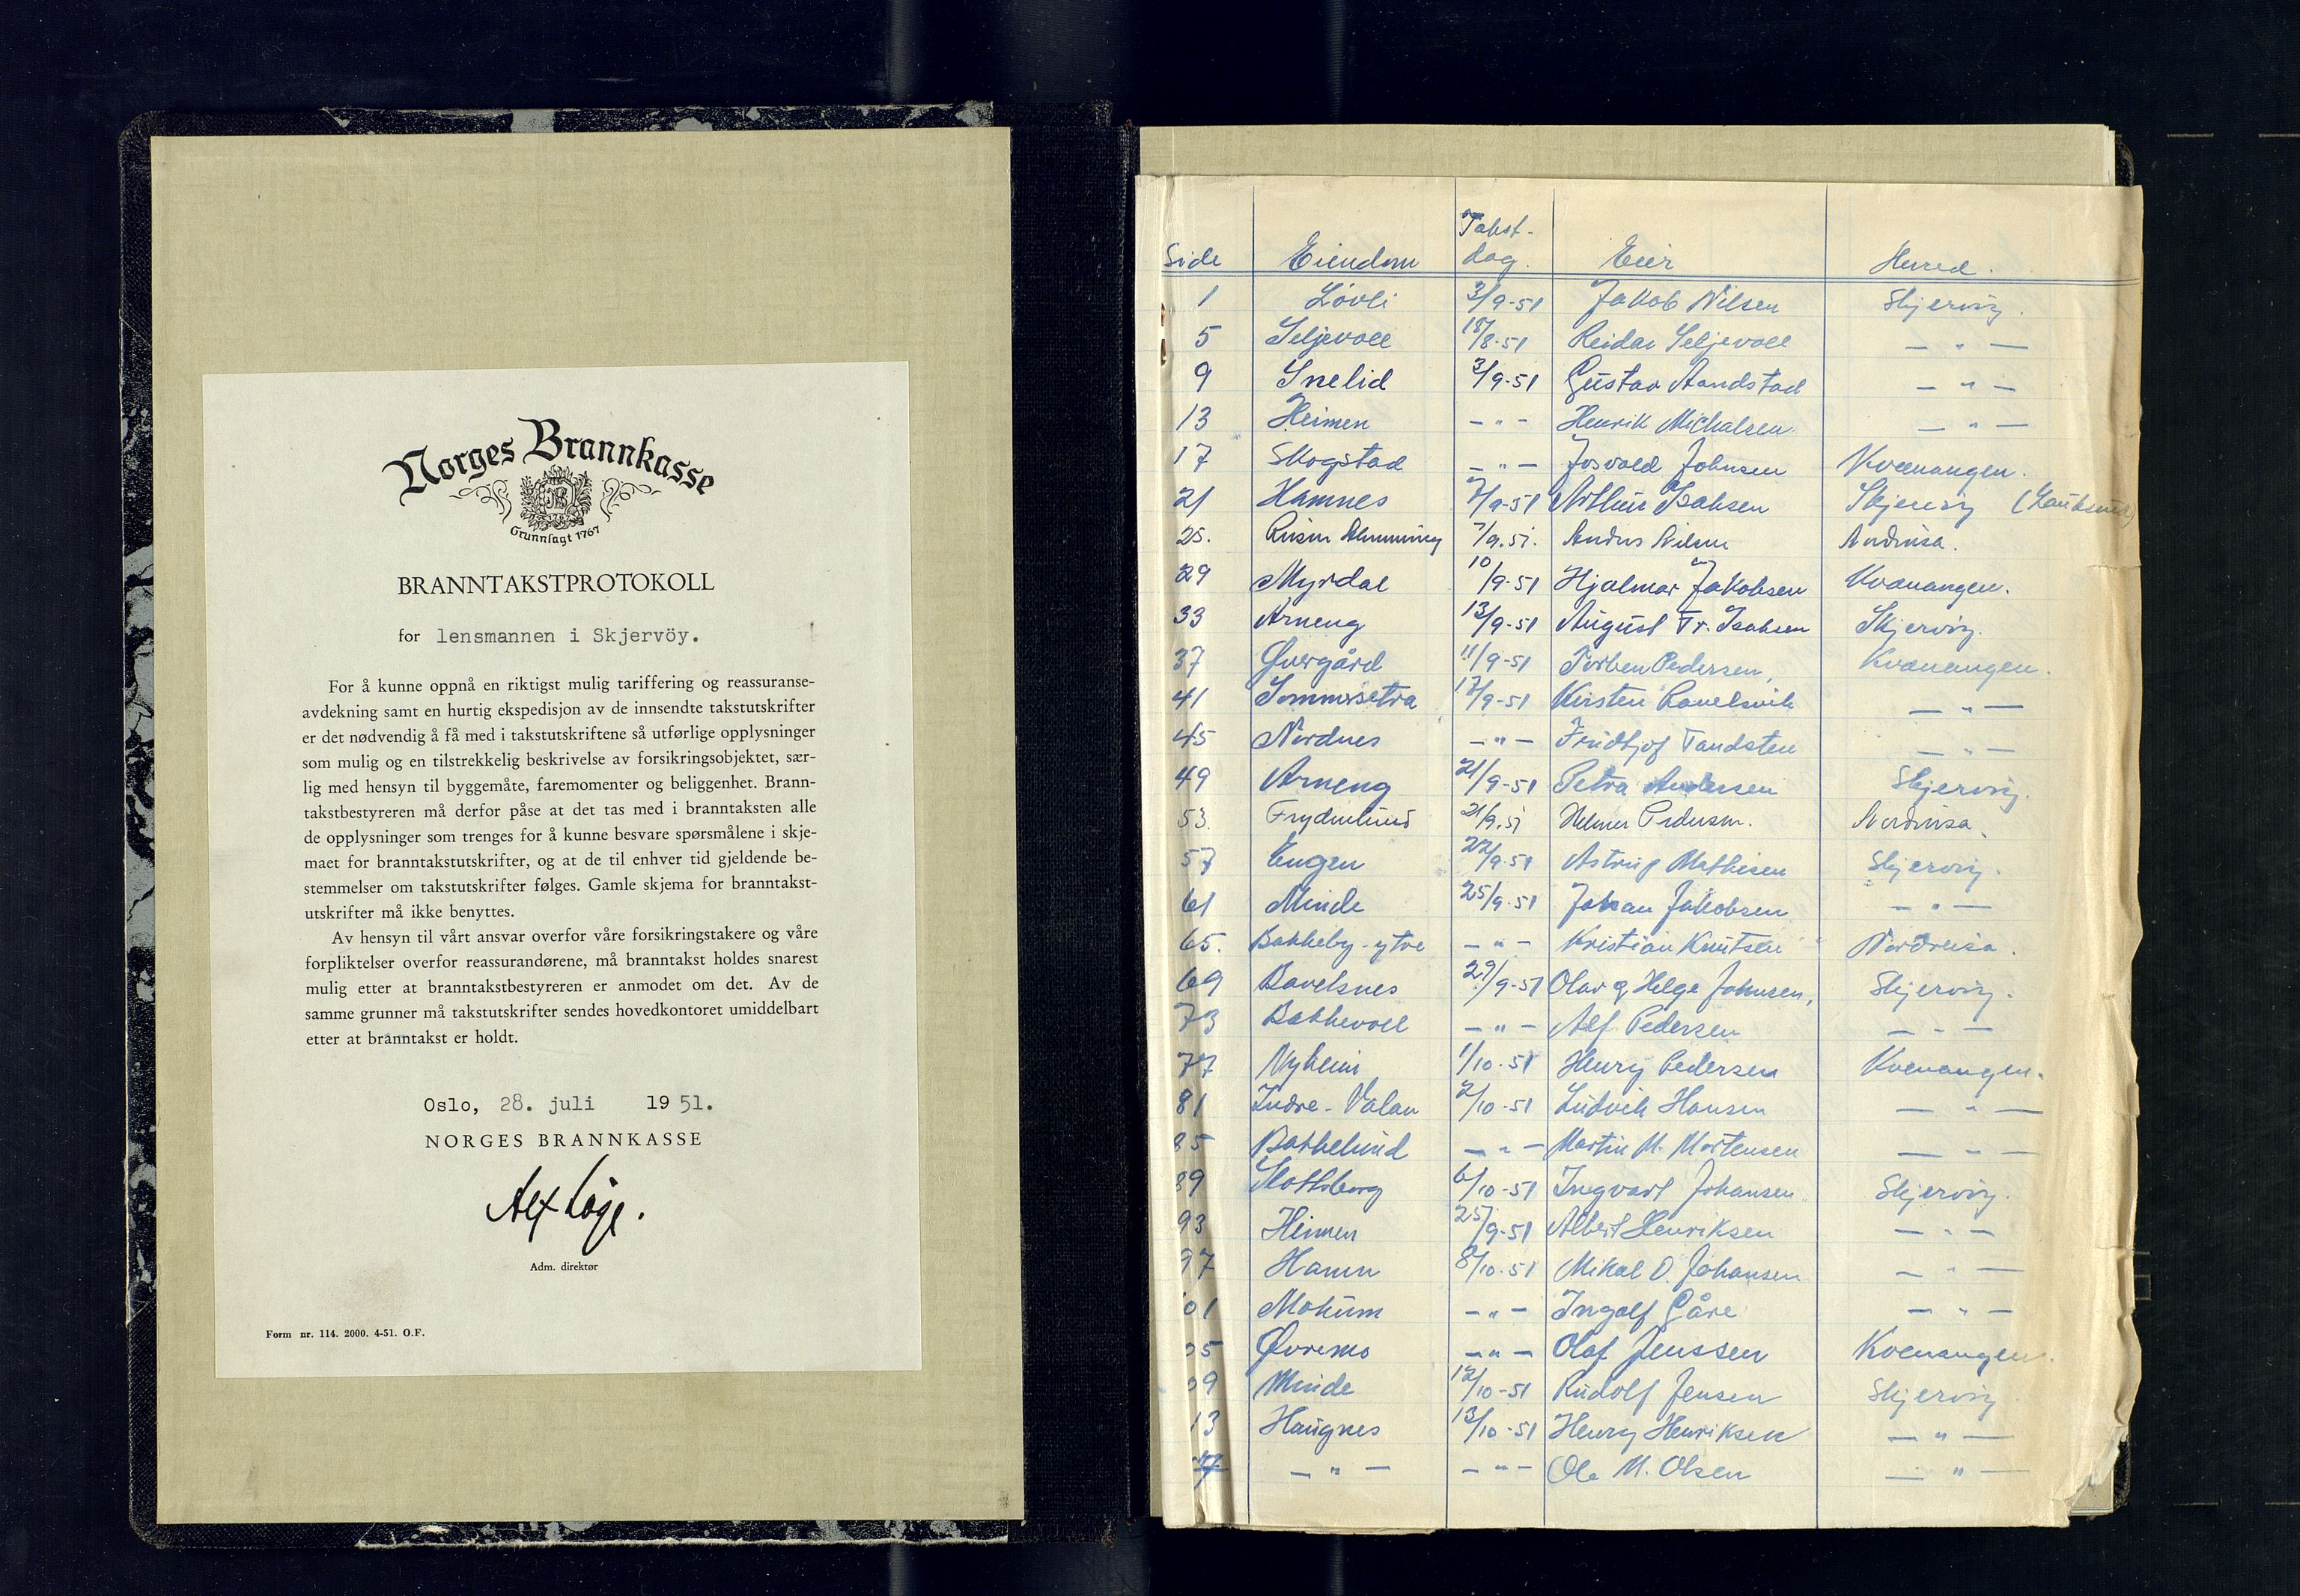 Norges Brannkasse
Grunnlagt 1767
BRANNTAKSTPROTOKOLL
for lensmannen i Skjervöy.
For å kunne oppnå en riktigst mulig tariffering og reassuranse-
avdekning samt en hurtig ekspedisjon av de innsendte takstutskrifter
er det nødvendig å få med i takstutskriftene så utførlige opplysninger
som mulig og en tilstrekkelig beskrivelse av forsikringsobjektet, sær-
lig med hensyn til byggemåte, faremomenter og beliggenhet. Brann-
takstbestyreren må derfor påse at det tas med i branntaksten alle
de opplysninger som trenges for å kunne besvare spørsmålene i skje-
maet for branntakstutskrifter, og at de til enhver tid gjeldende be-
stemmelser om takstutskrifter følges. Gamle skjema for branntakst-
utskrifter må ikke benyttes.
Av hensyn til vårt ansvar overfor våre forsikringstakere og våre
forpliktelser overfor reassurandørene, må branntakst holdes snarest
mulig etter at branntakstbestyreren er anmodet om det. Av de
samme grunner må takstutskrifter sendes hovedkontoret umiddelbart
etter at branntakst er holdt.
Oslo, 28. juli 1951.
NORGES BRANNKASSE
Adm. direktør
Form nr. 114. 2000. 4-51. O.F.
Side Eiendom Takst-dag. Eier Herred.
1 Lövli 3/9-51 Jakob Nilsen Skjervöy.
5 Seljevoll 18/8-51 Reidar Seljevoll — " —
9 Snelid 3/9-51 Gustav Aandstad — " —
13 Heimen - " - Henrik Michalsen — " —
17 Skogstad — " — Josvald Johnsen Kvænangen.
21 Hamnes 7/9-51 Arthur Isaksen Skjervöy (Lauksund)
25. 7/9.51. Andrs Nilsen Nordreisa.
29 Myrdal 10/9-51 Hjalmar Jakobsen Kvænangen.
33 Arneng 13/9-51 August Fr. Isaksen Skjervöy.
37 Øvergård 11/9-51 Torben Pedersen, Kvænangen.
41 Sommersetra 12/9-51 Kirsten — " —
45 Nordnes — " — Fridtjof Tandsten — " —
49 Arneng 21/9-51 Petra Andersen Skjervöy.
53. Frydenlund 21/9.51 Helmer Pedersen. Nordreisa.
57 Engen 22/9-51 Astrup Mathisen Skjervöy.
61 Minde 25/9-51 Johan Jakobsen — " —
65. Bakkeby-ytre — " — Kristian Knutsen Nordreisa.
69 Ravelsnes 29/9-51 Olav og Helge Johnsen, Skjervöy.
73 Bakkevoll — " — Alf Pedersen — " —
77 Nyheim 1/10-51 Henry Pedersen Kvænangen.
81 Indre-Valan 2/10-51 Ludvik Hansen — " —
85 Bakkelund — " — Martin M. Mortensen — " —
89 6/10-51 Ingvart Johansen Skjervöy.
93 Heimen 25/9-51 Albert Henriksen — " —
97 Hamn 8/10-51 Mikal O. Johansen — " —
01 - " - Ingolf Gåre — " —
05 Øvremo — " — Olaf Jenssen Kvænangen.
09 Minde 12/10-51 Rudolf Jensen Skjervöy
13 Haugnes 13/10-51 Henry Henriksen — " —
— " — — " — Ole M. Olsen — " —